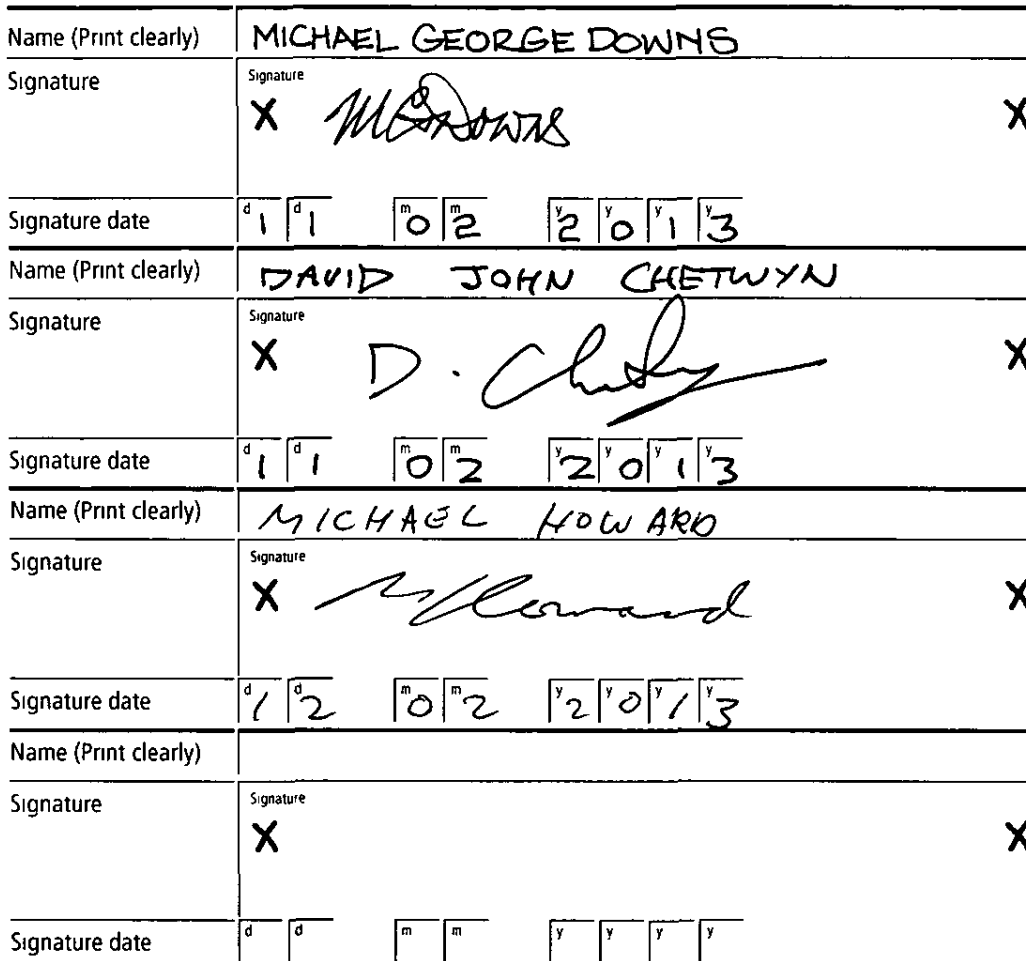 Name (Print clearly) MICHAEL GEORGE DOWNS
Signature Signature
X MGDowns X
Signature date d1 d1 m0 m2 y2 y0 y1 y3
Name (Print clearly) DAVID JOHN CHETWYN
Signature Signature
X D. Chetwyn X
Signature date d1 d1 m0 m2 y2 y0 y1 y3
Name (Print clearly) MICHAEL HOWARD
Signature Signature
X M Howard X
Signature date d1 d2 m0 m2 y2 y0 y1 y3
Name (Print clearly)
Signature Signature
X X
Signature date d d m m y y y y